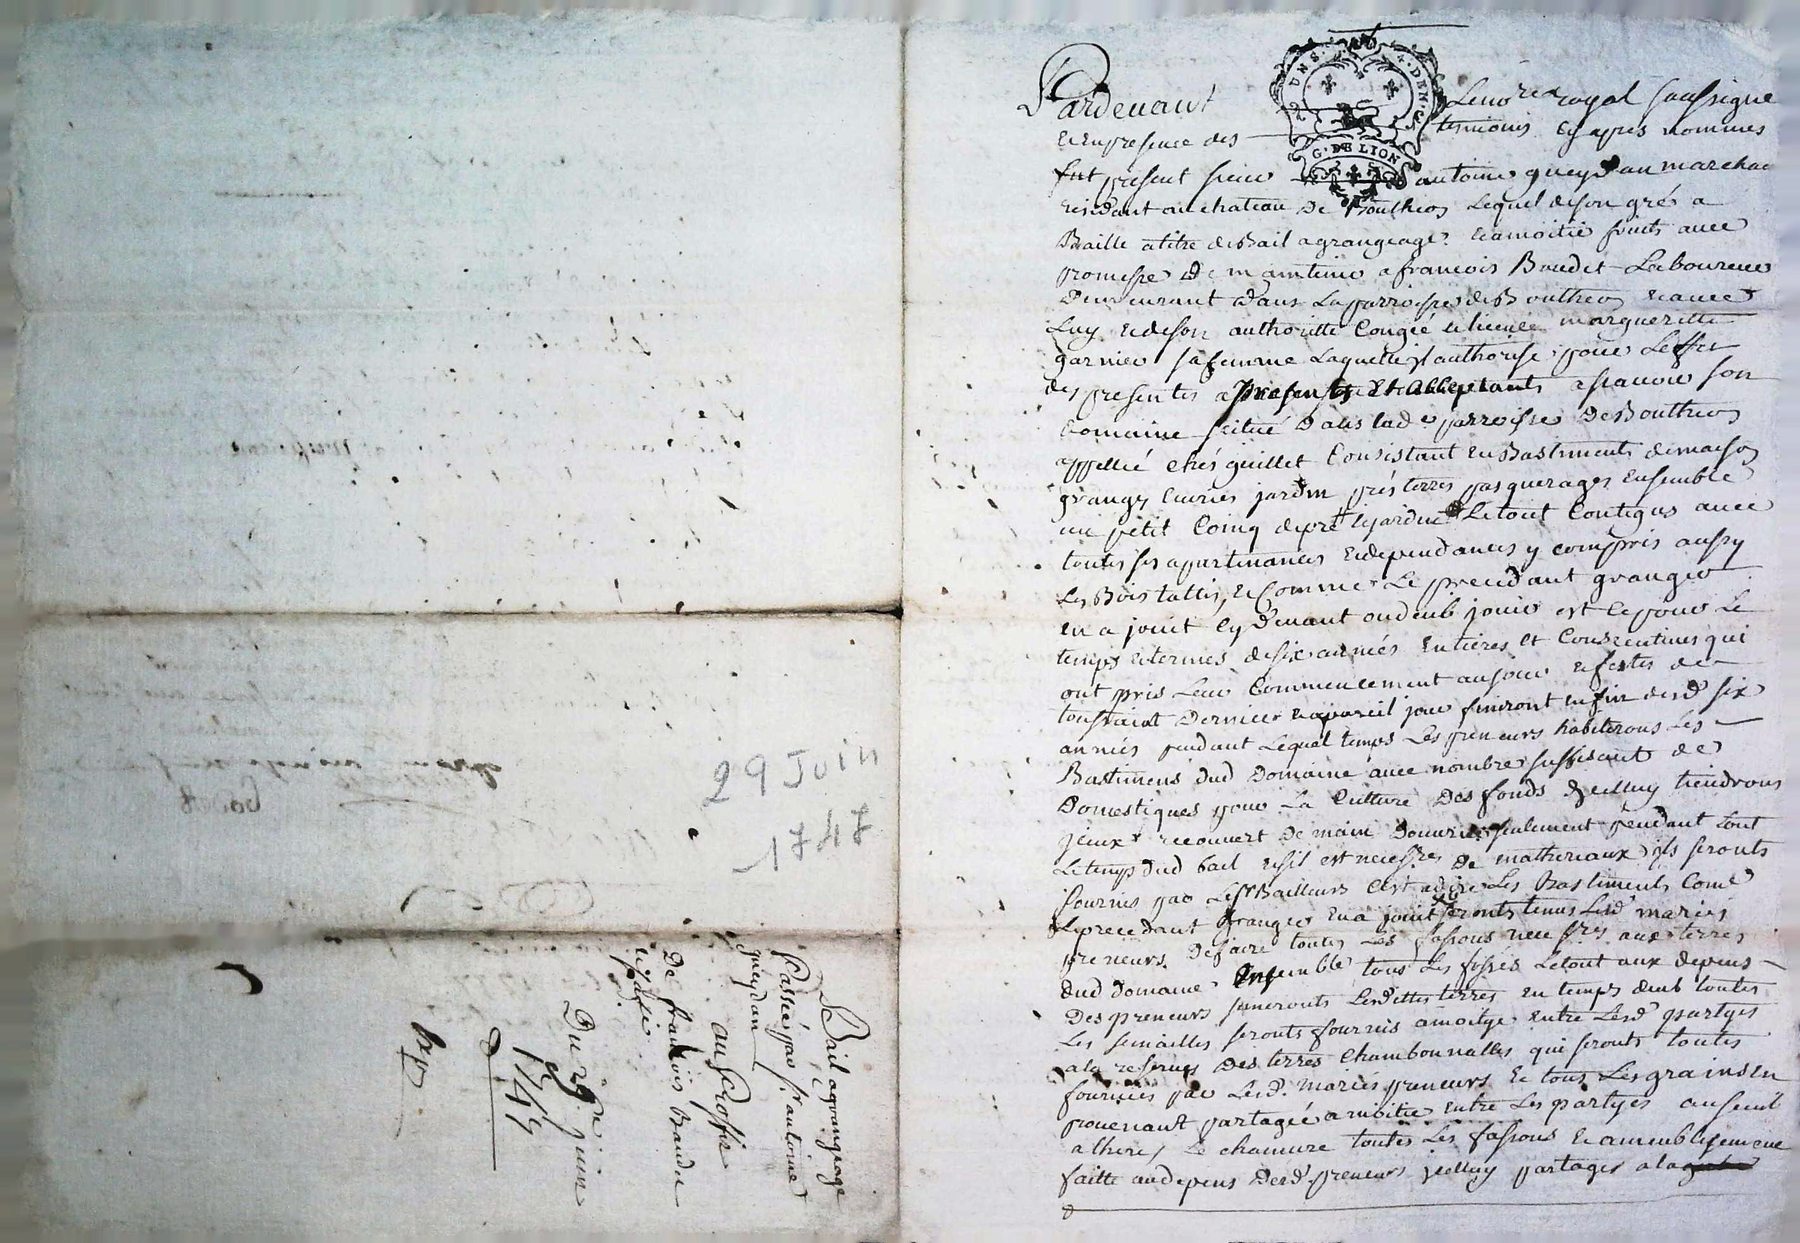 29 Juin
1747
Bail agrangeage
Passée par sr antoine
gueydan
au proffit
De francois Baudet
et sa fe
Du 29e juin
1747
DEUX S.
G. DE LION
Pardevant Le nore royal soussigné
et en presence des temoins cy apres nommes
fut present sieur antoine gueydan marchand
residant au chateau de Boutheon Lequel de son gré a
Baillé a titre de Bail agrangeage et a moitié fruits avec
promesse de maintenir a francois Baudet Laboureur
Demeurant dans La parroisse de Boutheon et avec
Luy et de son authorité Congé et licence margueritte
garnier sa femme Laquelle il authorise pour Leffet
des presentes a presents et acceptants a scavoir son
domaine scitué dans lade parroisse de Boutheon
appellé chés guillet Consistant en Bastiments de maison
grange ecuries jardin prés terres pasquerages Ensemble
un petit Coing de pré Le tout Contigus avec
toutes ses apartenances et dependances y compris aussy
Les Bois taillis, et Comme Le precedant granger
en a jouit cydevant ou deub jouir est ce pour Le
temps et termes de six années Entieres et Consecutives qui
ont pris Leur Commencement au jour et festes de
toussaint dernier et a pareil jour finiront en fin desd six
années pendant Lequel temps Les preneurs habiterons Les
Bastimens dud Domaine avec nombre suffisant de
Domestiques pour La Culture Des fonds d'icelluy tiendrons
jceux recouvert de main Douvrier seulement pendant tout
Le temps dud bail et sil est necessre de matheriaux jls seronts
fournis par Le sr Bailleurs Cest adire Les Bastiments Come
Le precedant Granger en a jouit seronts tenus Lesd mariés
preneurs De faire toutes Les fassons necessres aux terres
dud domaine Ensemble tous Les fossés Le tout aux depens
Des preneurs semeronts Lesdittes terres en temps deub toutes
Les semailles seronts fournis a moitye entre Lesd partyes
a la reserve Des terres Chambonnalles qui seronts toutes
fournies par Lesd. mariés preneurs Et tous Les grains en
provenant partagée a moitie entre Les partyes au seuil
Le chanvre toutes Les fassons
faitte au depens Desd. preneurs jcelluy partages a la